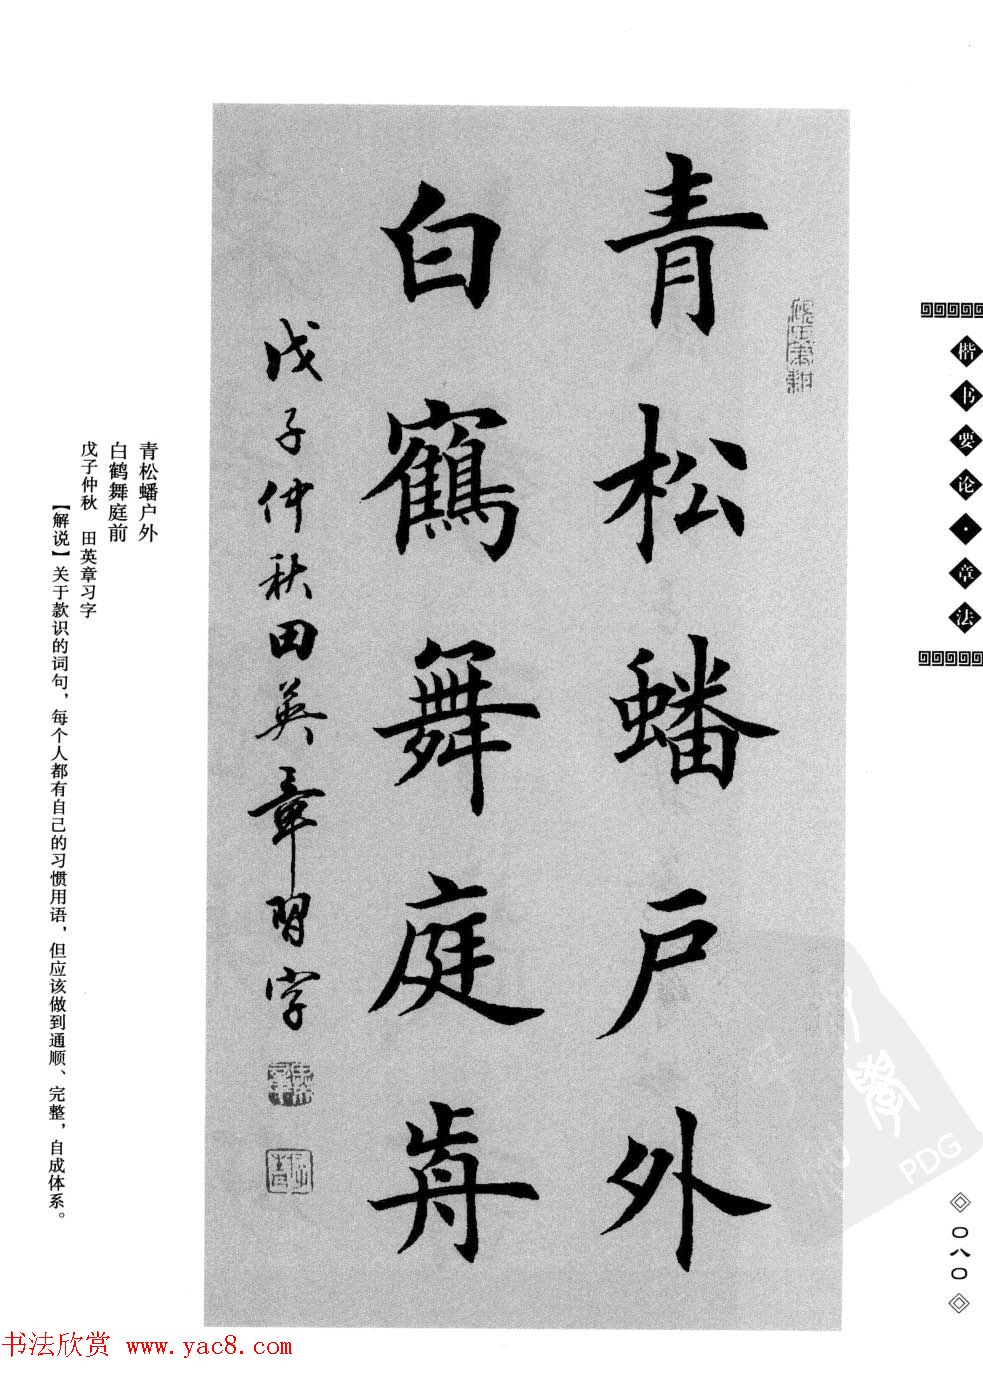 楷书要论·章法
青松蟠戶外
白鶴舞庭歬
戊子仲秋田英章習字
青松蟠户外
白鹤舞庭前
戊子仲秋 田英章习字
【解说】关于款识的词句，每个人都有自己的习惯用语，但应该做到通顺、完整，自成体系。
〇八〇
PDG
书法欣赏 www.yac8.com